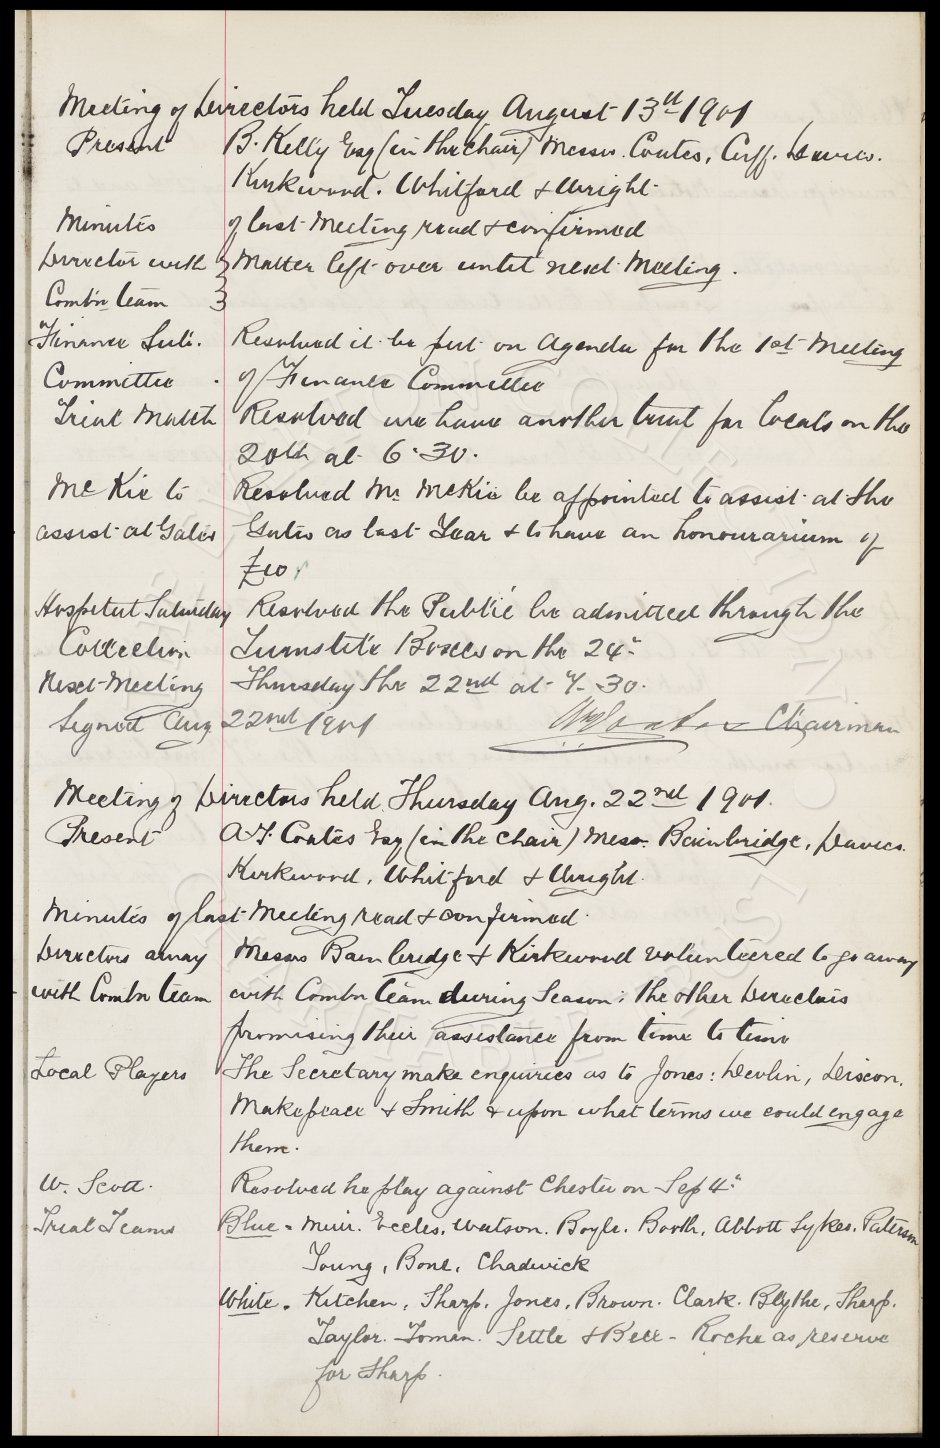 Meeting of Directors held Tuesday August 13th 1901
Present B. Kelly Esq (in the chair) Messrs. Coates, Cuff, Davies.
Kirkwood. Whitford & Wright.
Minutes of last Meeting read & confirmed
Director with } Matter left over until next Meeting.
Comb'n team }
Finance Sub. Resolved it be put on Agenda for the 1st Meeting
Committee. of Finance Committee
Trial Match Resolved we have another trial for locals on the
20th at 6.30.
McKie to Resolved Mr. McKie be appointed to assist at the
assist at Gates Gates as last Year & to have an honourarium of
£10.
Hospital Saturday Resolved the Public be admitted through the
Collection Turnstile Boxes on the 24th
Next Meeting Thursday the 22nd at 7-30.
Signed Aug 22nd 1901 Chairman
Meeting of Directors held Thursday Aug. 22nd 1901.
Present A.T. Coates Esq (in the chair) Messrs. Bainbridge, Davies.
Kirkwood, Whitford & Wright.
Minutes of last Meeting read & confirmed.
Directors away Messrs Bainbridge & Kirkwood volunteered to go away
with Combn team with Combn Team during Season: the other Directors
promising their assistance from time to time
Local Players The Secretary make enquiries as to Jones: Devlin, Dixon.
Makepeace & Smith & upon what terms we could engage
them.
W. Scott. Resolved he play against Chester on Sep 4th
Trial Teams Blue - Muir. Eccles. Watson. Boyle. Booth, Abbott Sykes. Paterson
Young, Bone, Chadwick
White. Kitchen, Sharp. Jones. Brown. Clark. Blythe, Sharp.
Taylor. Toman. Settle & Bell - Roche as reserve
for Sharp.